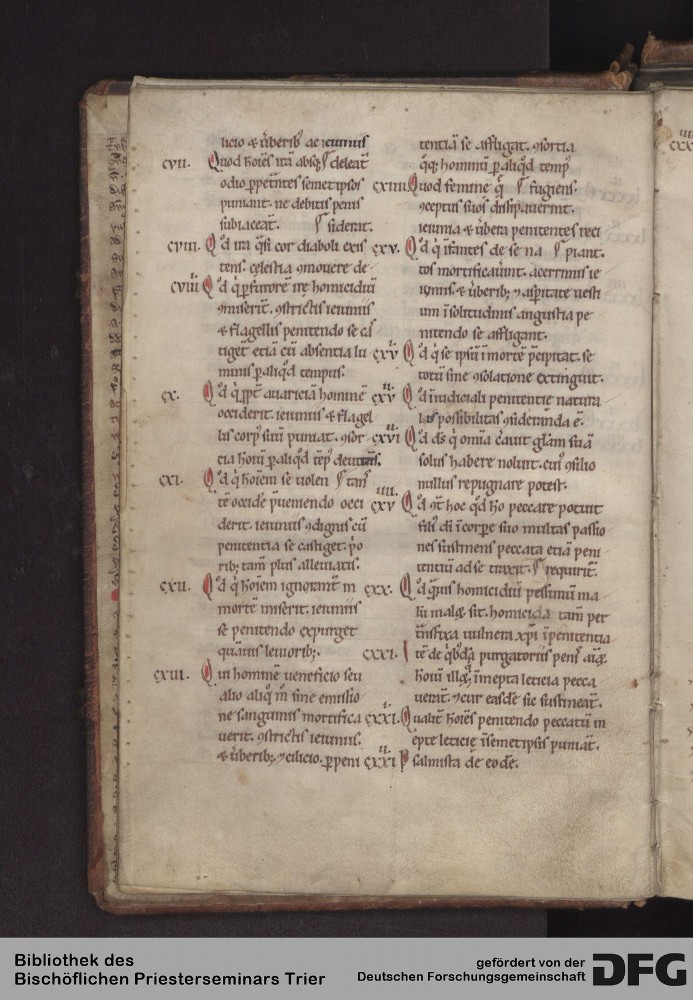 licio ⁊ ũberib᷒ ac ieiuniis
CVII. Quod hoĩes ita absq; deleat̃
odio ꝑpetrãtes semetipsos
puniant. ne debitis penis
subiaceat. siderat.
CVIII. Qd ita q̃si cor diaboli exis
tens. celestia ꝯmouere de-
CVIIII Qd q̇ ꝑ furorẽ ire homicidiũ
ꝯmiserit. ꝯstrictis ieiuniis
& flagellis penitendo se cas
tiget etiã cũ absentia lu
minis ꝑ aliqd tempus.
CX. Qd q̇ ꝓpt̃ auariciã hominẽ
occiderit. ieiuniis & flagel
lis corp᷒ suũ puniat. ꝯsor
cia hoiũ ꝑ aliqd tẽp᷒ deuitãs.
CXI. Qd q̇ hoĩem se uolen tam̃
tẽ occide p̃ueniendo occi
derit. ieiuniis ꝯdignis cũ
penitentia se castiget. p̃o
rib; tam̃ plus alleuiatis.
CXII. Qd q̇ hoĩem ignorant̃ in
mortẽ miserit. ieiuniis
se penitendo expurget
quãuis leuiorib;.
CXIII. Qui hominẽ ueneficio seu
alio aliq̊ m̊ sine emissio
ne sanguinis mortifica
uerit. ꝯstrictis ieiuniis.
& ũberib; ⁊ cilicio. ꝑ peni
tentiã se affligat. ꝯsortia
q̊q; hominũ ꝑ aliqd temp᷒
CXIIII Quod femine q̃ fugiens.
ꝯceptus suos dissipauerint.
ieiunia & ũbera penitentes reci
CXV. Qd q̇ ĩfantes de se na piant.
tos mortificauũnt. acerrimis ie
iuniis. & ũberib; ⁊ asꝑitate uesti
um ĩ solitudinis angustia pe
nitendo se affligant.
CXVI Qd q̇ se ipsũ ĩ mortẽ p̃cipitat. se
totũ sine ꝯsolatione extinguit.
CXVII Qd ĩ iudiciali penitentie natura
lis possibilitas ꝯsiderãnda ẽ.
CXVIII Qd ds̃ q̇ omĩa c̃auit gl̃am suã
solus habere noluit. cui᷒ ꝯsilio
nullus repugnare potest.
CXVIIII Qd ꝯt̃ hoc qd hõ peccare potuit
fili᷒ dĩ ĩ corꝑe suo multas passio
nes sustinens peccata etiã peni
tentiũ ad se traxit. requirit̃.
CXX. Qd q̃uis homicidiũ pessimũ ma
lũ malæ sit. homicida tam̃ per
tñsfixa uulnera xp̃i ĩ penitentia
CXXI. Itẽ de q̇bdã purgatoriis penis aĩaꝝ
hoiũ illoꝝ; ĩ inepta leticia pecca
uerãt. ⁊ cur easdẽ sic sustineãt.
CXXII. Qualit̃ hoĩes penitendo peccatũ in
epte leticie ĩ semetipsis puniãt.
CXXIII Psalmista de eodẽ.
Bibliothek des
Bischöflichen Priesterseminars Trier
gefördert von der
Deutschen Forschungsgemeinschaft
DFG